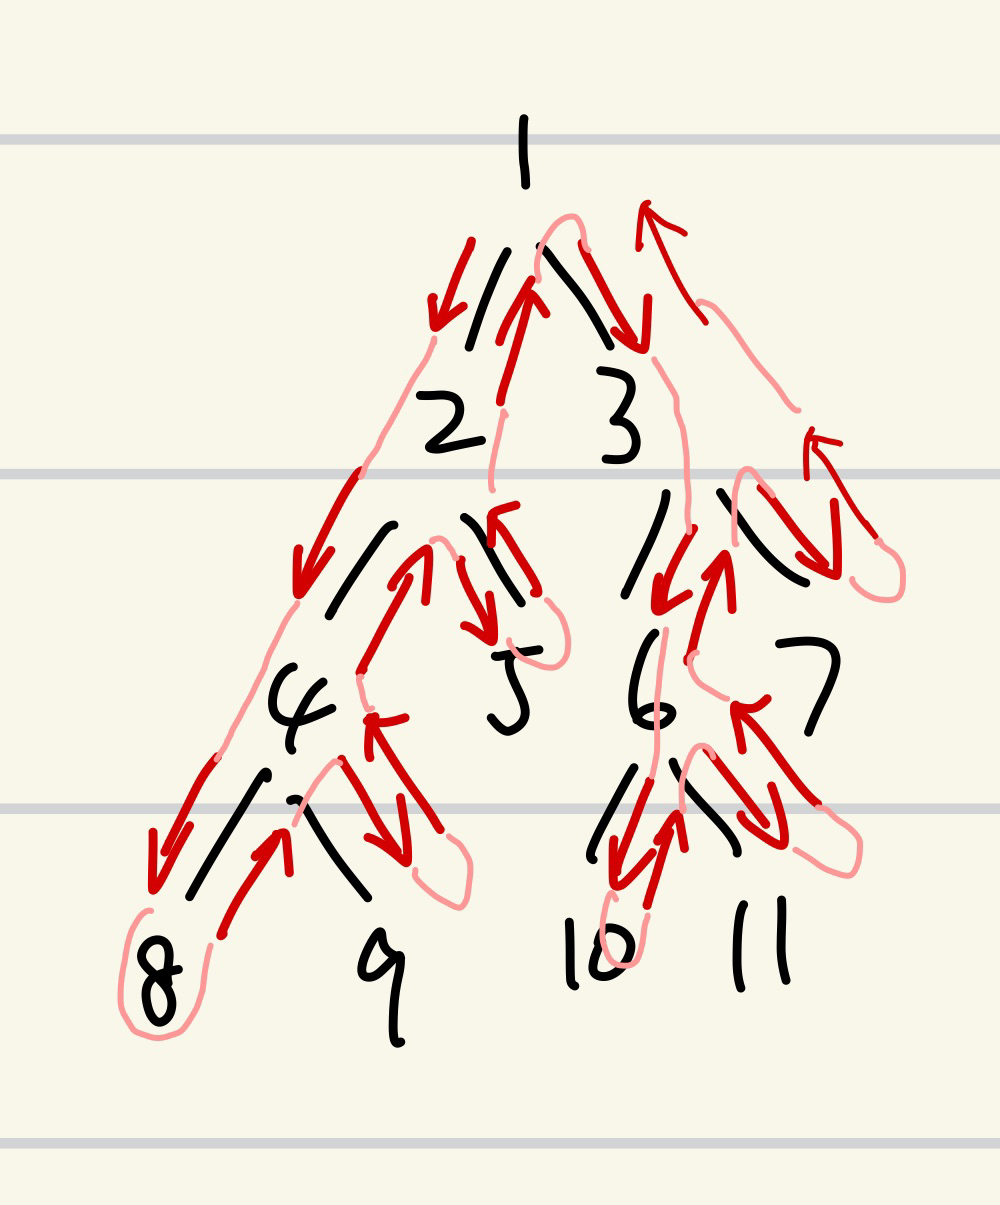 1
2 3
4 5 6 7
8 9 10 11